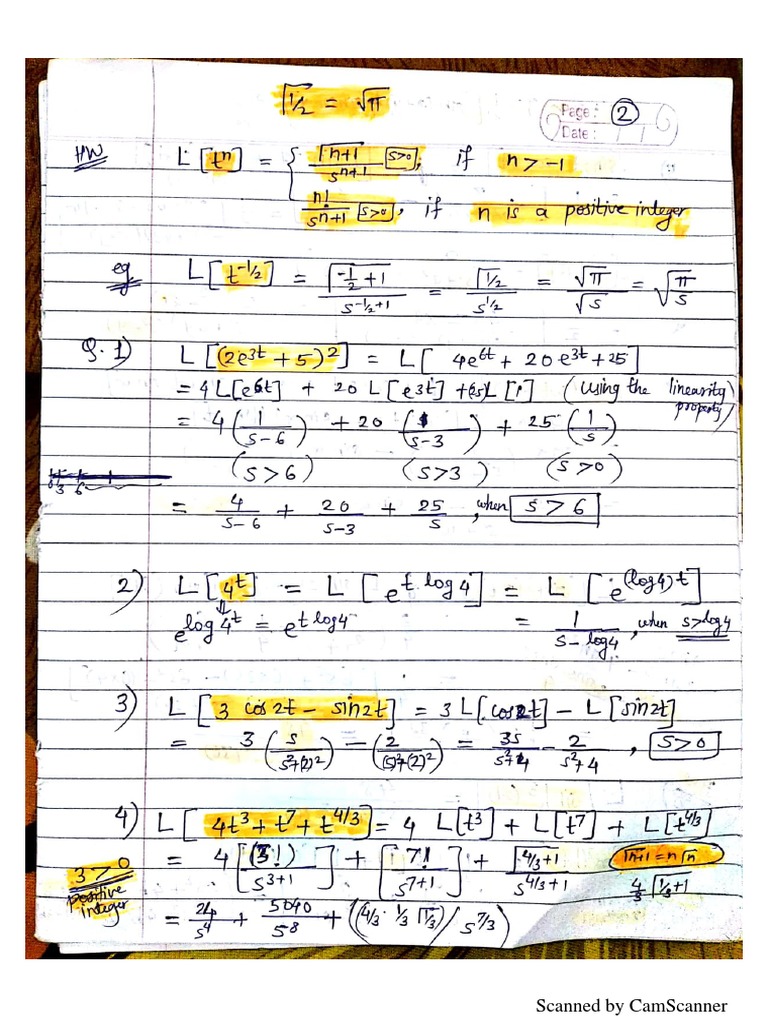 √1/2 = √π
Page: 2
Date:
HW L[tⁿ] = { Γn+1 / sⁿ⁺¹ [s>0], if n > -1
n! / sⁿ⁺¹ [s>0], if n is a positive integer
eg L[t^-1/2] = Γ(-1/2 + 1) / s^(-1/2+1) = Γ1/2 / s^1/2 = √π / √s = √(π/s)
Q.1) L[(2e^3t + 5)²] = L[4e^6t + 20e^3t + 25]
= 4L[e^6t] + 20 L[e^3t] + 25 L[1] (using the linearity property)
= 4(1/(s-6)) + 20(1/(s-3)) + 25(1/s)
(s>6) (s>3) (s>0)
0 3 6
= 4/(s-6) + 20/(s-3) + 25/s, when [s > 6]
2) L[4^t] = L[e^(t log4)] = L[e^((log4)t)]
e^(log4^t) = e^(t log4) = 1/(s-log4), when s>log4
3) L[3 cos2t - sin2t] = 3L[cos2t] - L[sin2t]
= 3(s/(s²+(2)²)) - (2/((s)²+(2)²)) = 3s/(s²+4) - 2/(s²+4), [s>0]
4) L[4t³ + t⁷ + t^4/3] = 4 L[t³] + L[t⁷] + L[t^4/3]
3>0 positive integer
= 4[(3!)/s^(3+1)] + [7!/s^(7+1)] + Γ4/3+1 / s^(4/3+1) (Γn+1 = nΓn)
4/3 Γ1/3+1
= 24/s⁴ + 5040/s⁸ + ((4/3 · 1/3 Γ1/3) / s^7/3)
Scanned by CamScanner